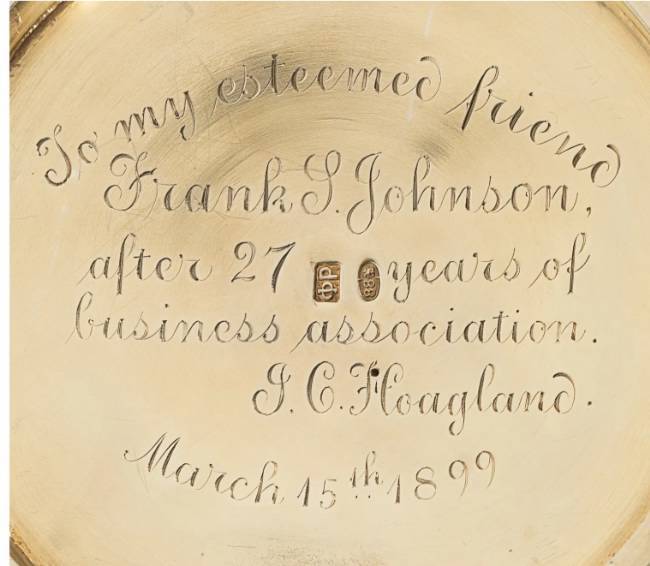 To my esteemed friend
Frank S. Johnson,
after 27 ФР 88 years of
business association.
J. C. Hoagland.
March 15th 1899